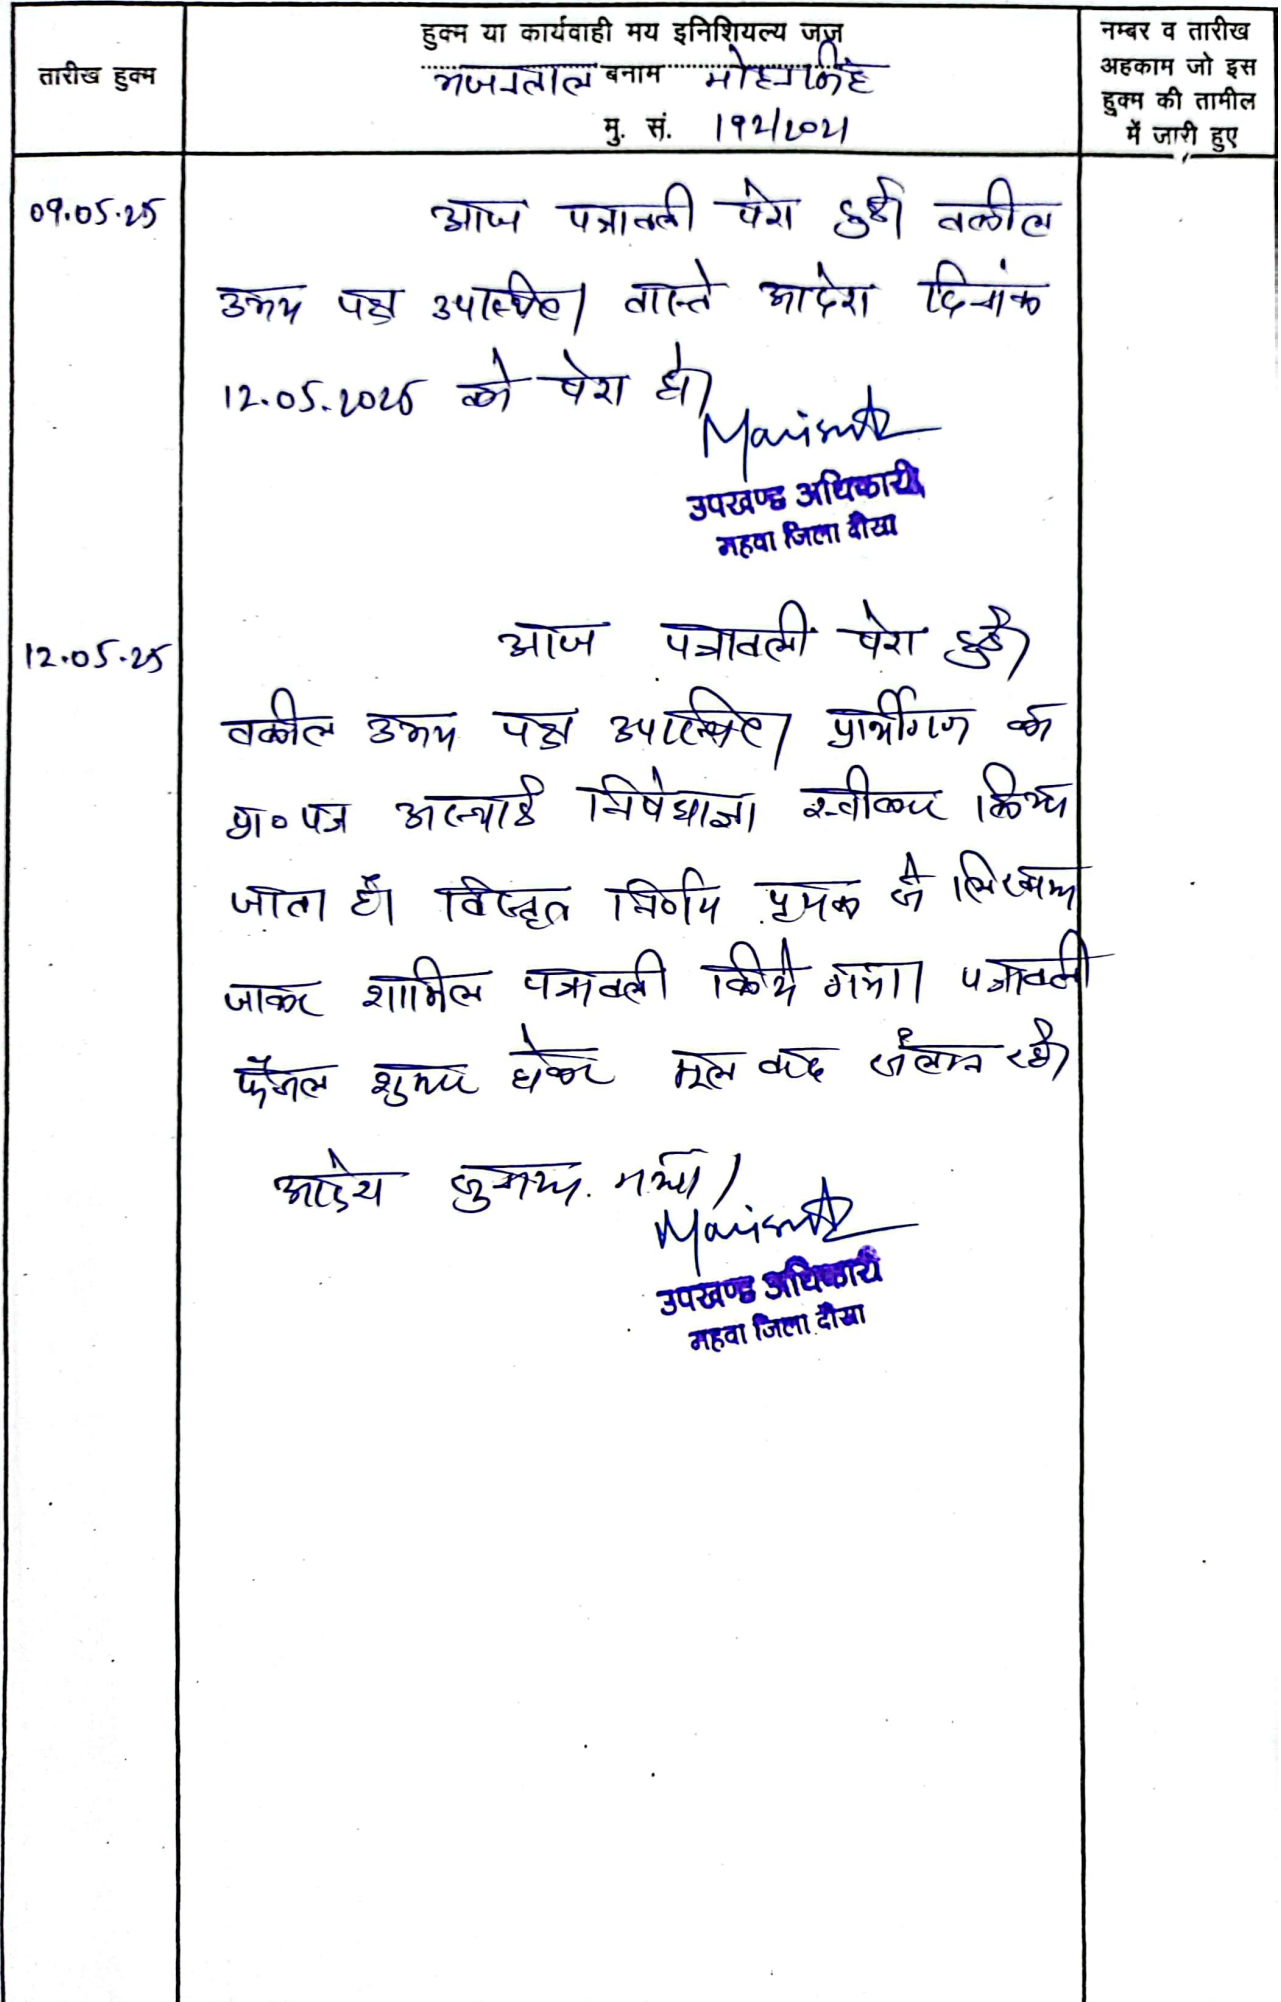 तारीख हुक्म
हुक्म या कार्यवाही मय इनिशियल्य जज
भजनलाल बनाम मोहनसिंह
मु. सं. 192/2021
नम्बर व तारीख
अहकाम जो इस
हुक्म की तामील
में जारी हुए
09.05.25
आज पत्रावली पेश हुई। वकील
उभय पक्ष उपस्थित। वास्ते आदेश दिनांक
12.05.2025 को पेश हो।
उपखण्ड अधिकारी
महवा जिला दौसा
12.05.25
आज पत्रावली पेश हुई।
वकील उभय पक्ष उपस्थित। प्रार्थीगण का
प्रा० पत्र अस्थाई निषेधाज्ञा स्वीकार किया
जाता है। विस्तृत निर्णय पृथक से लिखाया
जाकर शामिल पत्रावली किया गया। पत्रावली
फैसल शुमार होकर मूल वाद संलग्न रहे।
आदेश सुनाया गया।
उपखण्ड अधिकारी
महवा जिला दौसा